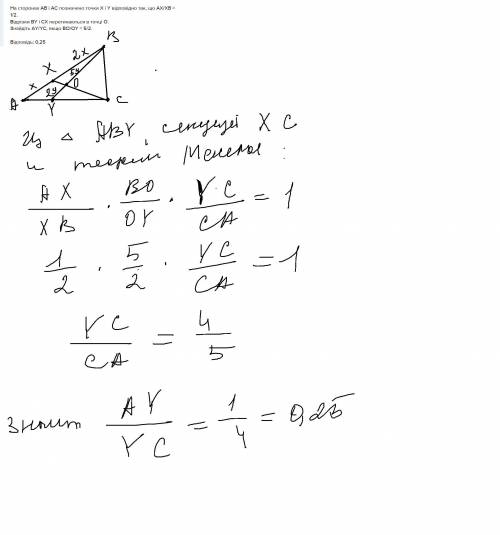 На сторонах AB і AC позначено точки X і Y відповідно так, що AX/XB =
1/2.
Відрізки BY і CX перетинаються в точці O.
Знайдіть AY/YC, якщо BO/OY = 5/2.
Відповідь: 0,25
B
2x
X
5y
x
O
2y
A
Y
C
Из △ ABY, секущей XC
и теореми Менелая :
AX/XB · BO/OY · YC/CA = 1
1/2 · 5/2 · YC/CA = 1
YC/CA = 4/5
Значит AY/YC = 1/4 = 0,25